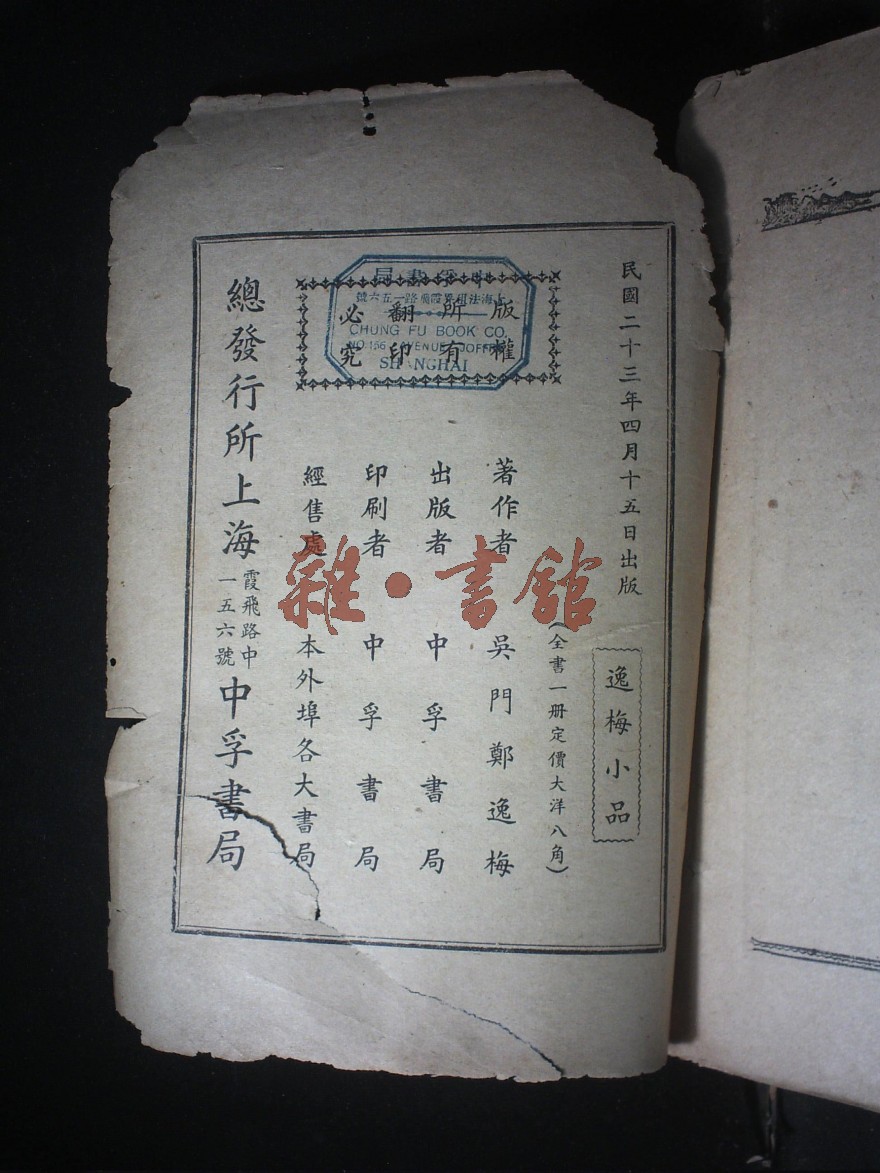 民國二十三年四月十五日出版
逸梅小品
(全書一册定價大洋八角)
版權所有
翻印必究
中孚書局
上海法租界霞飛路一五六號
CHUNG FU BOOK CO.
NO. 156 AVENUE JOFFRE
SHANGHAI
著作者 吳門鄭逸梅
出版者 中孚書局
印刷者 中孚書局
經售處 本外埠各大書局
總發行所上海霞飛路中一五六號中孚書局
雜·書館